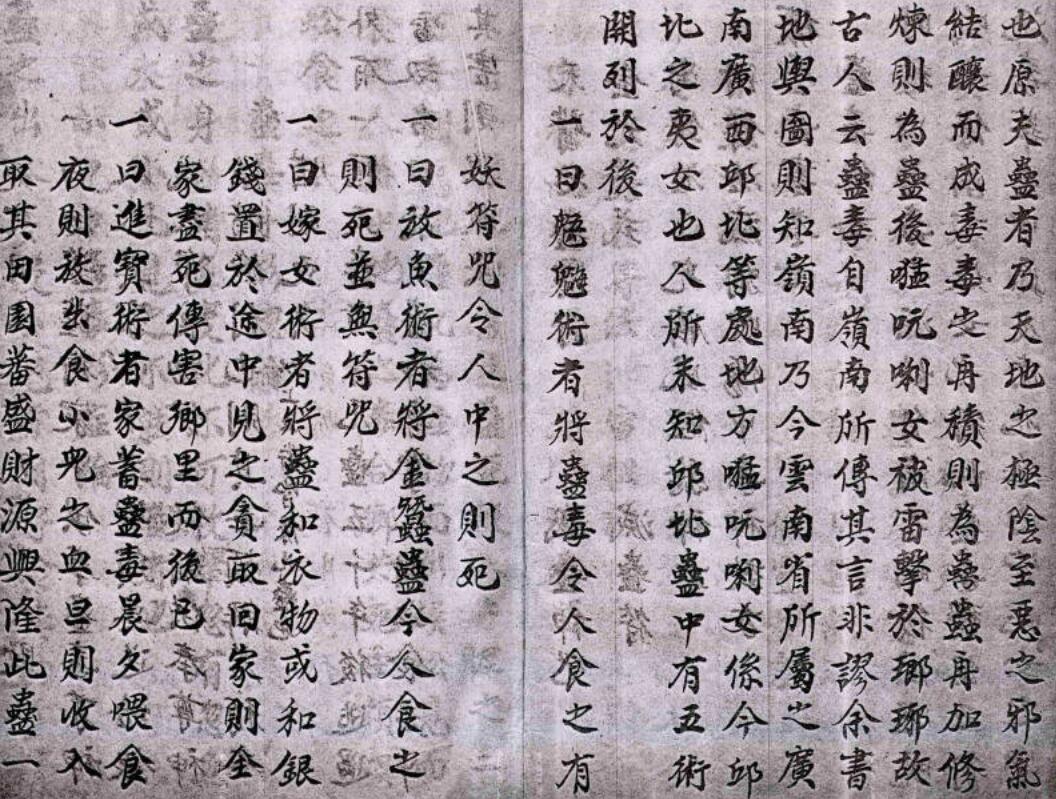 也原夫蠱者乃天地之極陰至惡之邪氣
結釀而成毒毒之再積則為蠱蟲再加修
煉則為蠱後嗌吭唎女被雷擊於瑯琊故
古人云蠱毒自嶺南所傳其言非謬余書
地輿圖則知嶺南乃今雲南省所屬之廣
南廣西邱北等處地方嗌吭唎女係今邱
北之夷女也人所未知邱北蠱中有五術
開列於後
一曰魑術者將蠱毒令人食之有
妖符咒令人中之則死
一曰放魚術者將金蠶蠱令人食之
則死並無符咒
一曰嫁女術者將蠱和衣物或和銀
錢置於途中見之貪取回家則全
家盡死傳害鄉里而後已
一曰進寶術者家蓄蠱毒晨夕喂食
夜則放出食小兒之血旦則收入
取其田園蕃盛財源興隆此蠱一